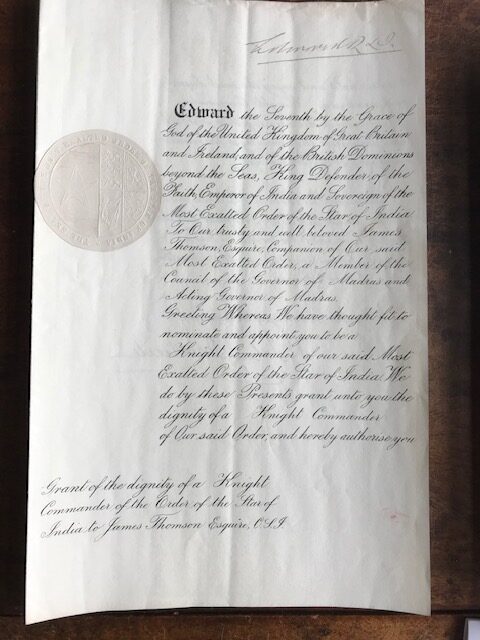 Edward R & I.
Edward the Seventh by the Grace of
God of the United Kingdom of Great Britain
and Ireland, and of the British Dominions
beyond the Seas, King Defender of the
Faith, Emperor of India and Sovereign of the
Most Exalted Order of the Star of India
To Our trusty and well beloved James
Thomson, Esquire, Companion of Our said
Most Exalted Order, a Member of the
Council of the Governor of Madras and
Acting Governor of Madras
Greeting Whereas We have thought fit to
nominate and appoint you to be a
Knight Commander of our said Most
Exalted Order of the Star of India We
do by these Presents grant unto you the
dignity of a Knight Commander
of Our said Order, and hereby authorise you
Grant of the dignity of a Knight
Commander of the Order of the Star of
India to James Thomson Esquire, C S I